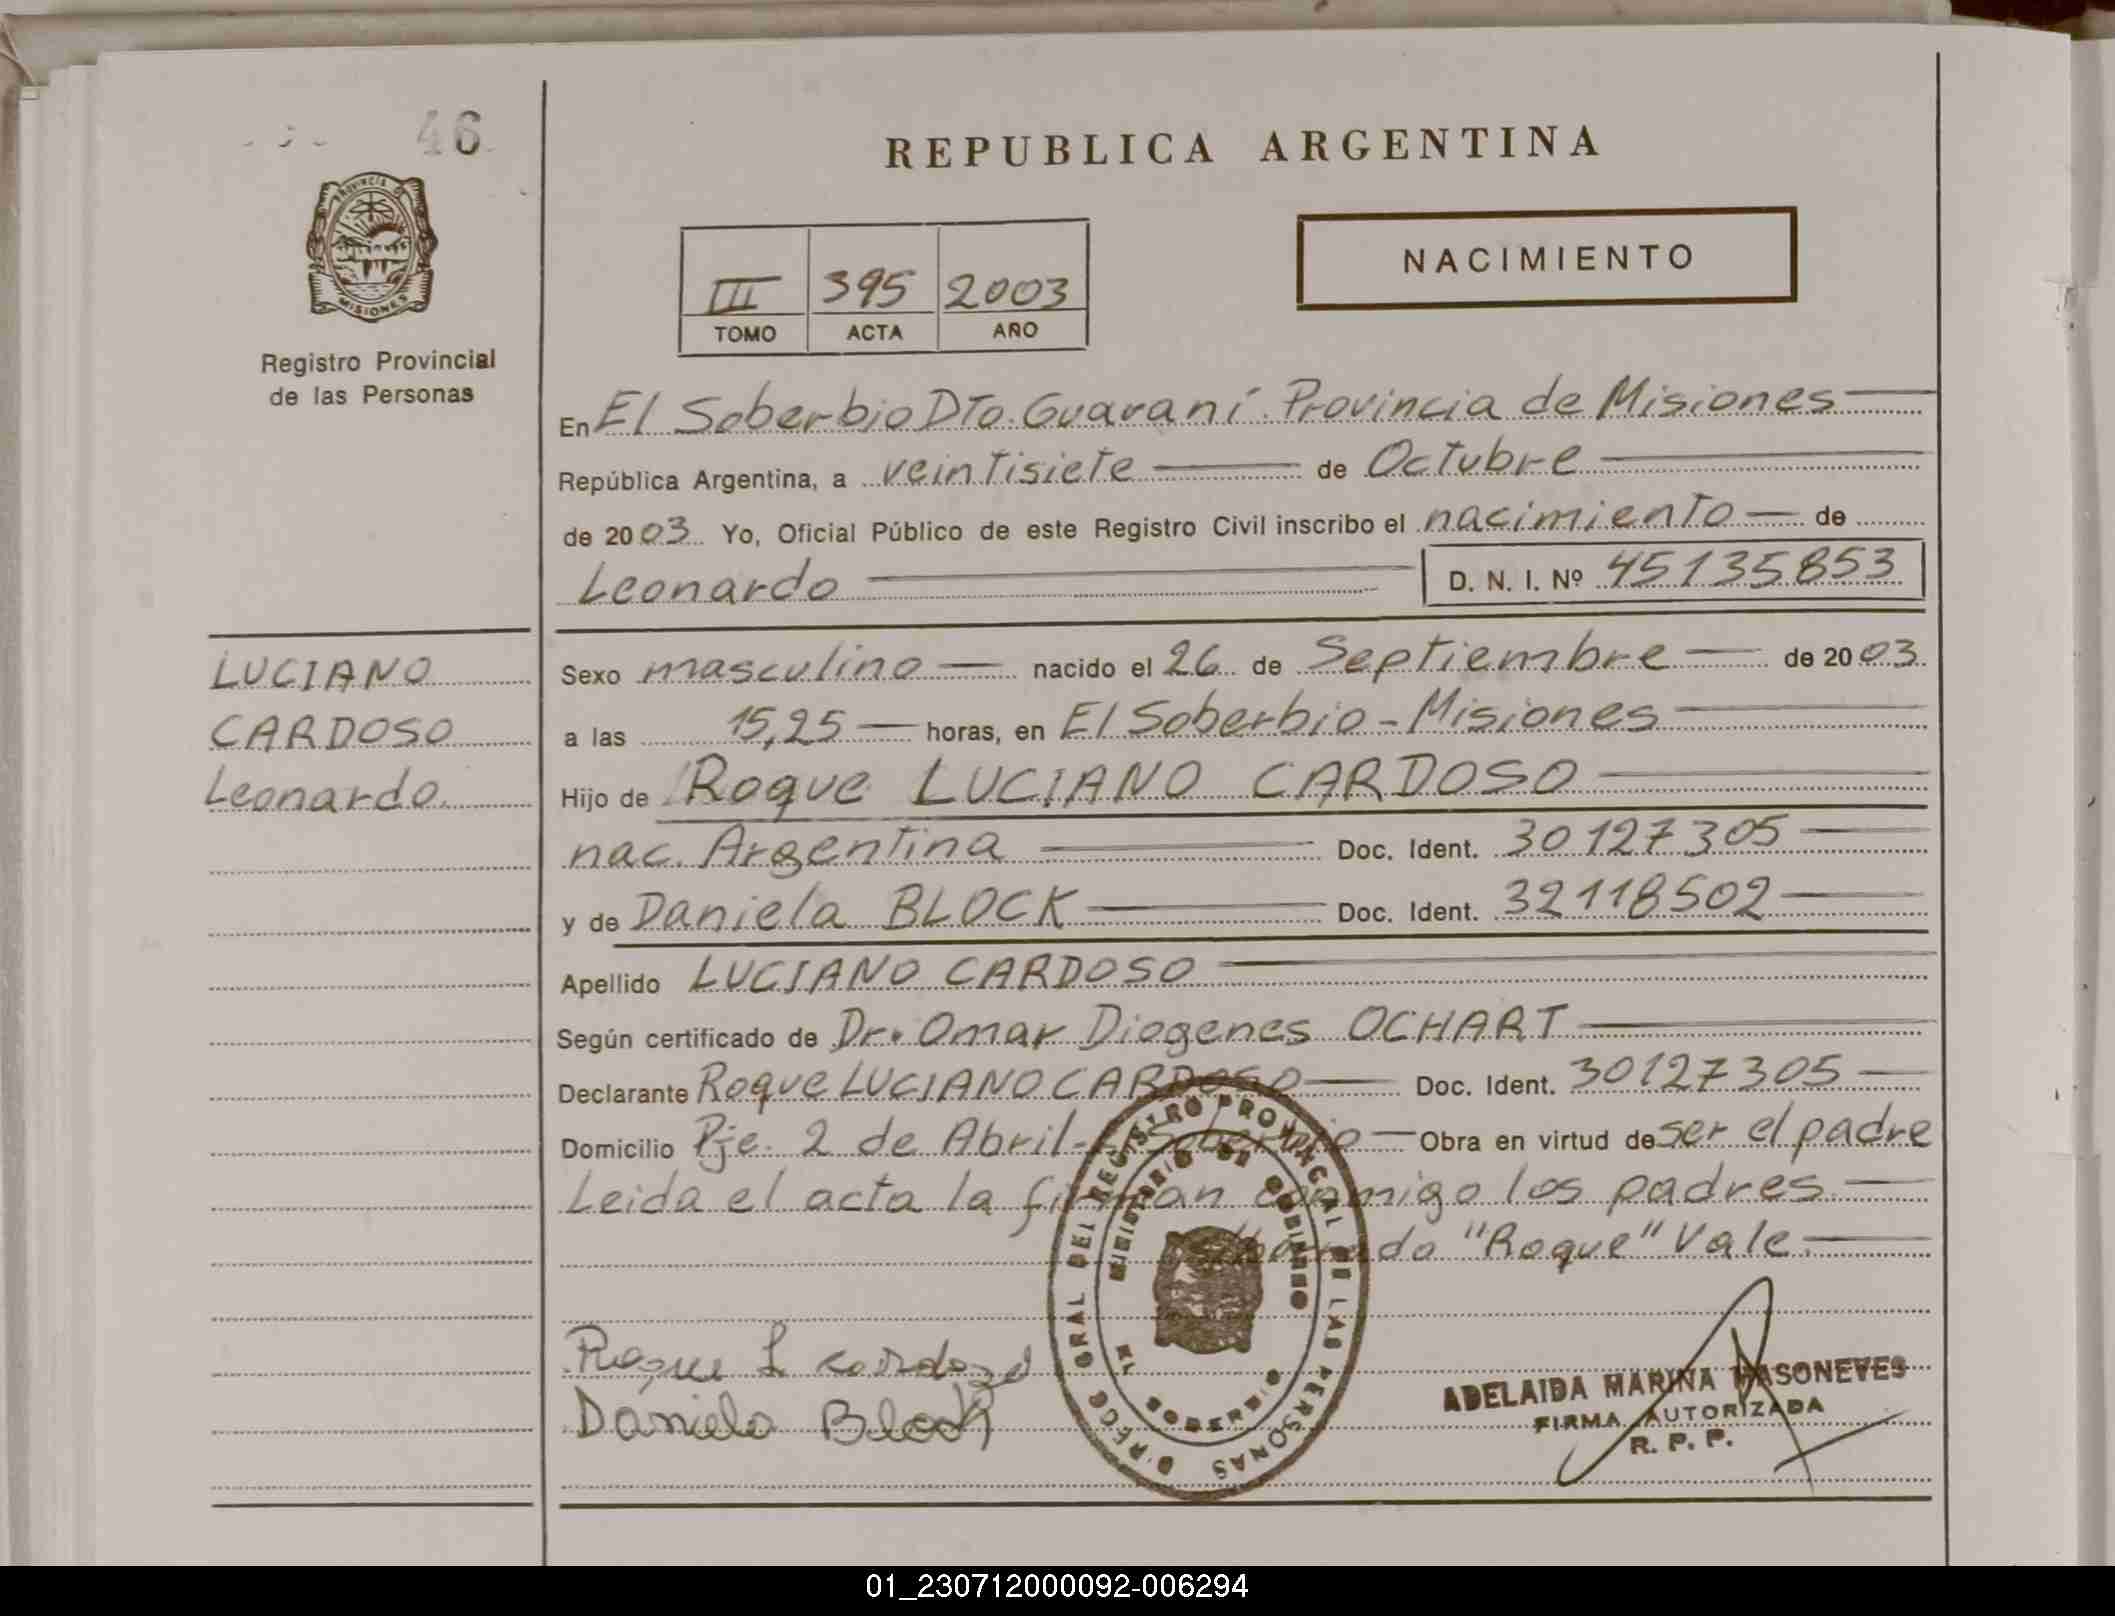 46
PROVINCIA DE
MISIONES
Registro Provincial
de las Personas
REPUBLICA ARGENTINA
III 395 2003
TOMO ACTA AÑO
NACIMIENTO
En El Soberbio Dto. Guaraní. Provincia de Misiones
República Argentina, a veintisiete de Octubre
de 2003 Yo, Oficial Público de este Registro Civil inscribo el nacimiento de
Leonardo D. N. I. Nº 45135853
LUCIANO
CARDOSO
Leonardo
Sexo masculino nacido el 26 de Septiembre de 2003
a las 15,25 horas, en El Soberbio - Misiones
Hijo de Roque LUCIANO CARDOSO
nac. Argentina Doc. Ident. 30127305
y de Daniela BLOCK Doc. Ident. 32118502
Apellido LUCIANO CARDOSO
Según certificado de Dr. Omar Diogenes OCHART
Declarante Roque LUCIANO CARDOSO Doc. Ident. 30127305
Domicilio Pje. 2 de Abril - El Soberbio Obra en virtud de ser el padre
Leida el acta la firman conmigo los padres.
"Roque" Vale.
Roque L Cardozo
Daniela Block
DIREC GRAL DEL REGISTRO PROVINCIAL DE LAS PERSONAS
MINISTERIO DE GOBIERNO
EL SOBERBIO
ADELAIDA MARINA MASONEVES
FIRMA AUTORIZADA
R. P. P.
01_230712000092-006294